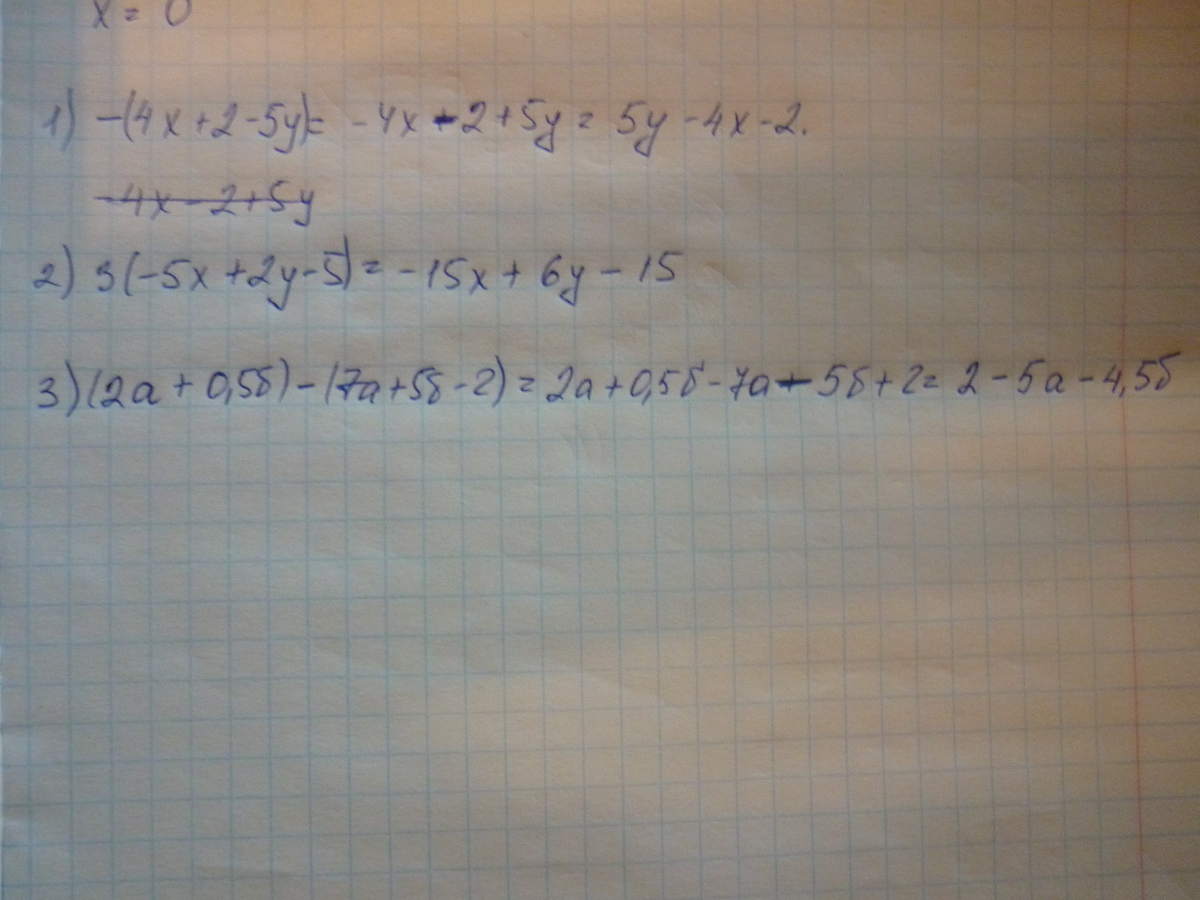 x = 0
1) -(4x+2-5y)= -4x-2+5y= 5y-4x-2.
-4x-2+5y
2) 3(-5x+2y-5)= -15x+6y-15
3) (2a+0,5б)-(7a+5б-2)= 2a+0,5б-7a-5б+2= 2-5a-4,5б